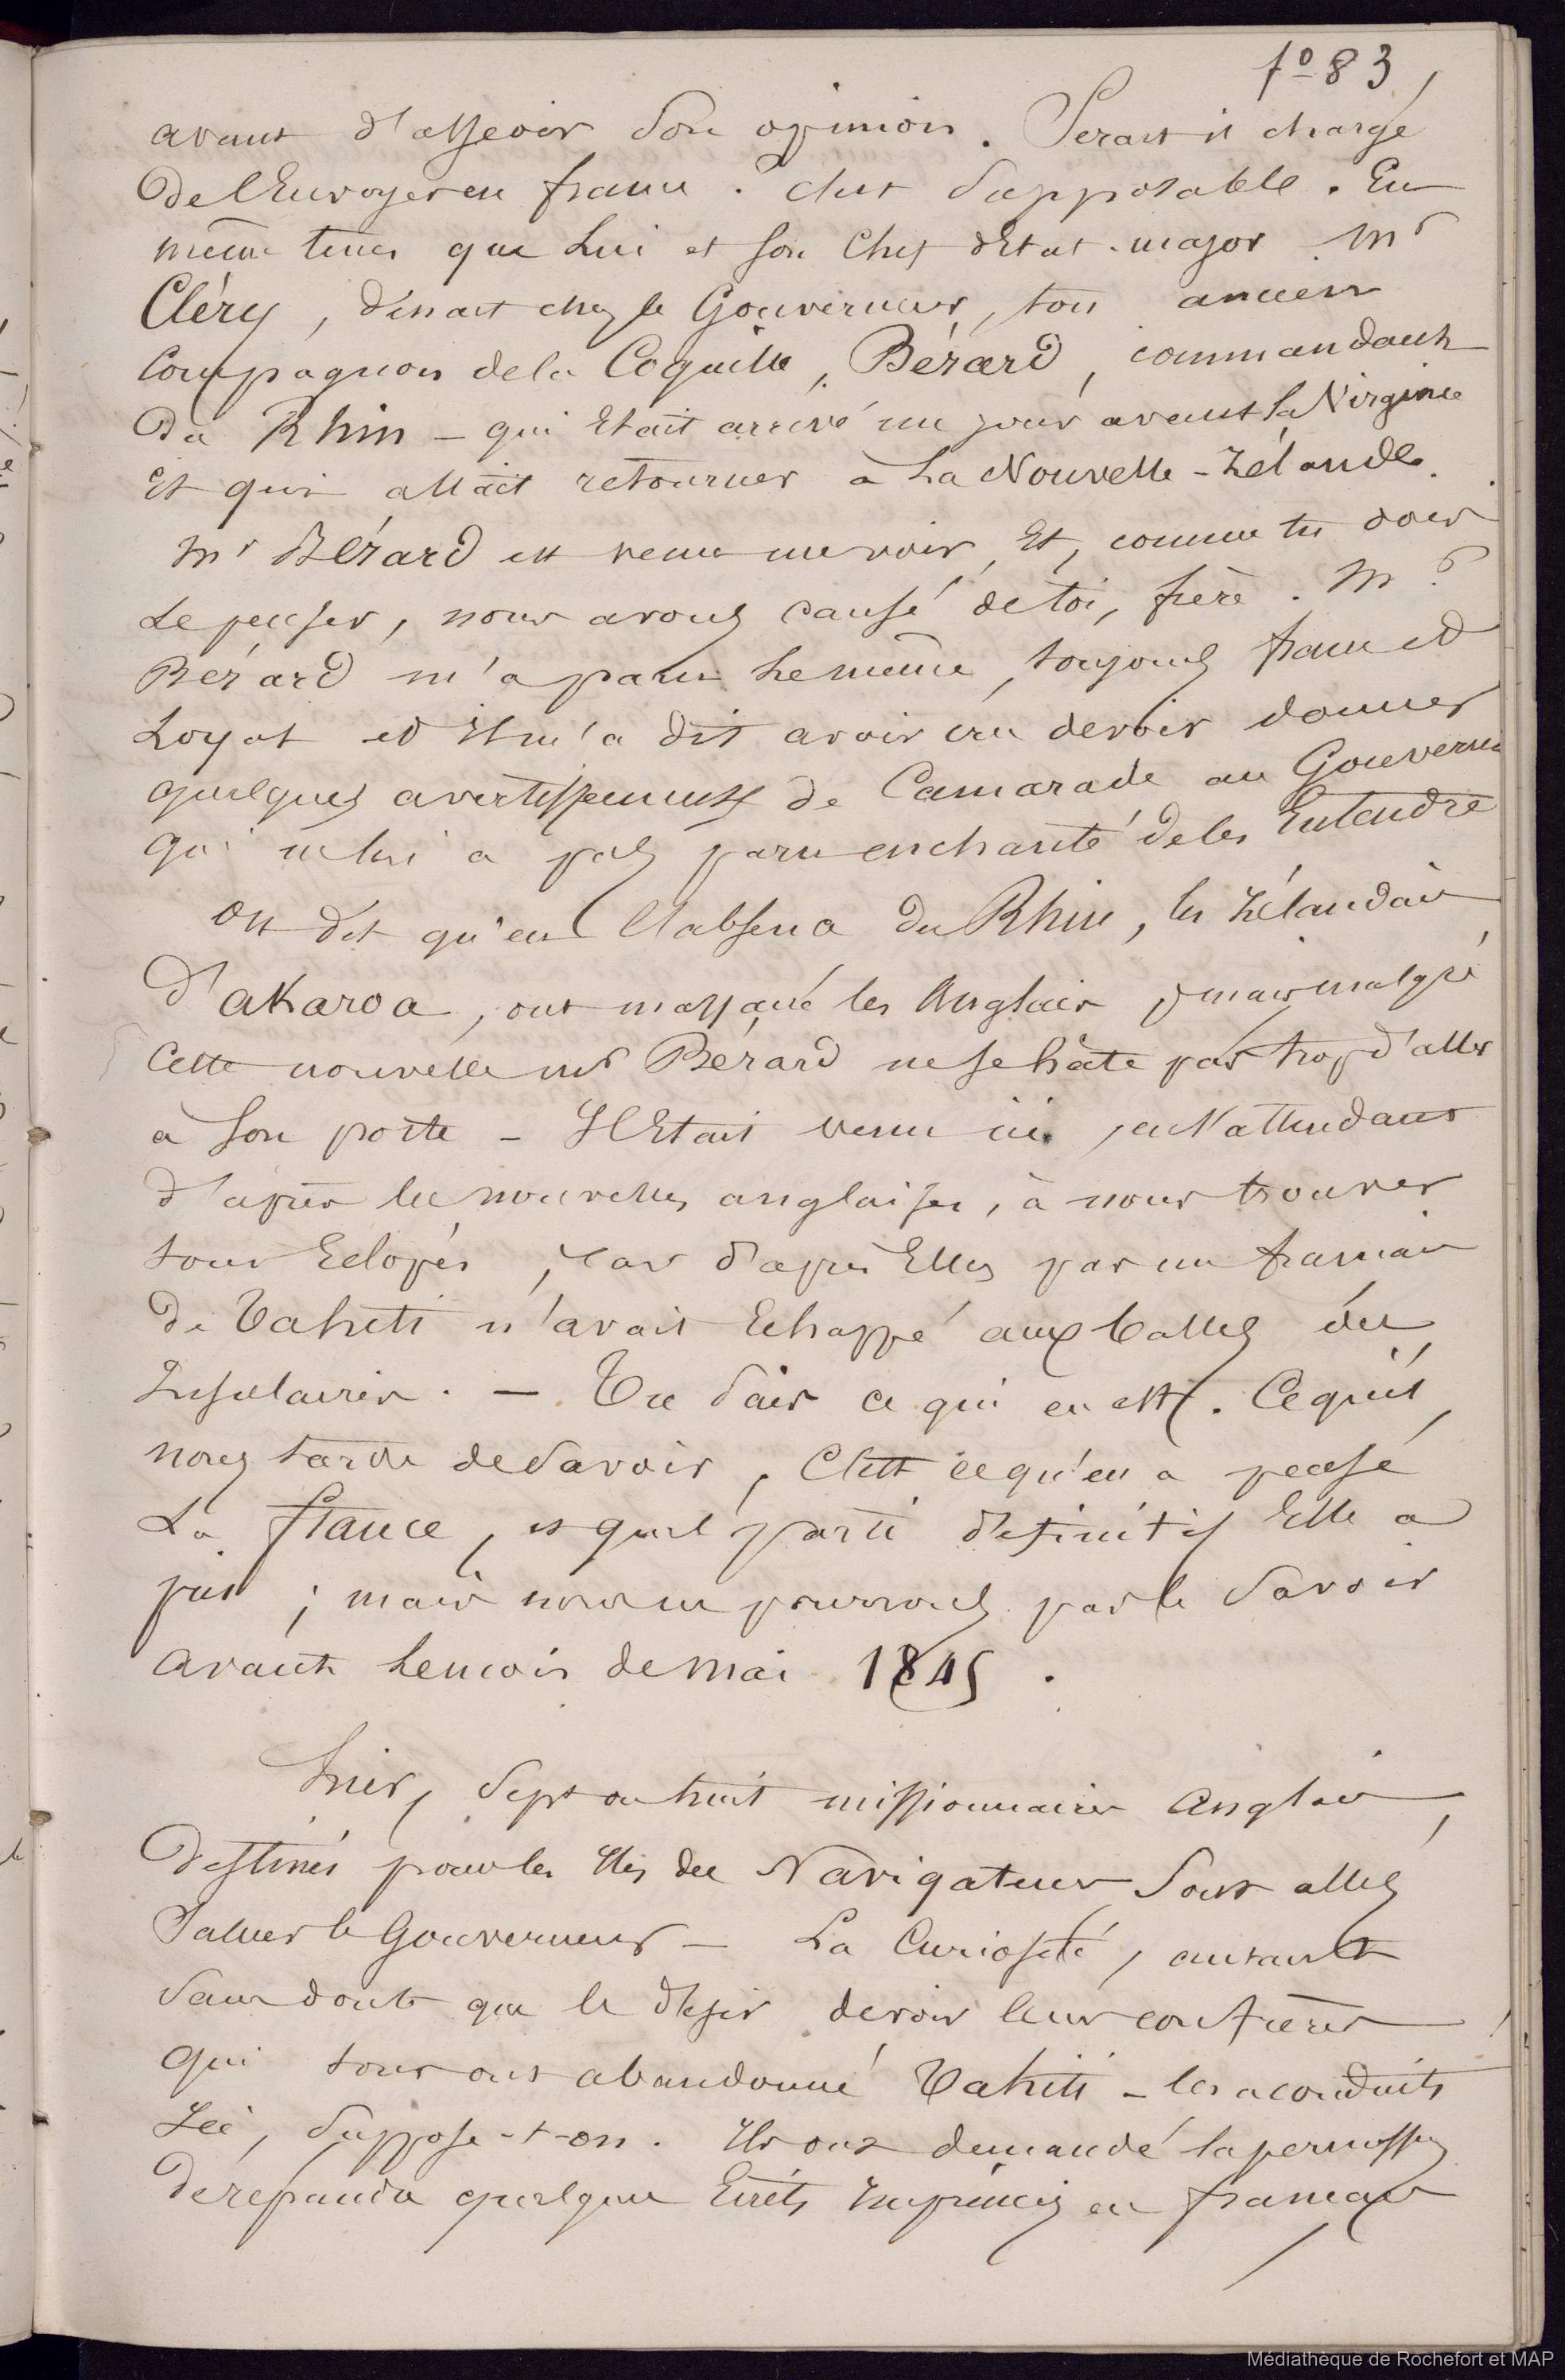 f° 83
avant d'asseoir son opinion. Serait il chargé
de l'Envoyer en france. c'est supposable. En
même tems que Lui et son Chef d'Etat-major Mr
Cléry, dinait chez le Gouverneur, ton ancien
Compagnon de la Coquille, Bérard, commandant
du Rhin - qui Etait arrivé un jour avant la Virginie
et qui allait retourner à La Nouvelle-Zélande.
Mr Bérard est venu me voir, Et, comme tu dois
Le penser, nous avons causé de toi, frère. Mr
Bérard m'a paru Le même, toujours franc et
Loyal et Il m'a dit avoir cru devoir donner
quelques avertissements de Camarade au Gouverneur
qui ne lui a pas paru enchanté de les Entendre
On dit qu'en l'absence du Rhin, les Zélandais
d'akaroa, ont massacré les Anglais, mais malgré
Cette nouvelle mr Bérard ne se hâte pas trop d'aller
à Son poste - Il Etait venu ici, en s'attendant
d'après les nouvelles anglaises, à nous trouver
tous Eclopés, car d'après Elles pas un français
de Tahiti n'avait Echappé aux balles des
Insulaires. - Tu sais ce qui en est. Ce qu'il
nous tarde de Savoir, C'est ce qu'en a pensé
La france, et quel parti définitif Elle a
pris ; mais nous ne pourrons pas le Savoir
avant Le mois de mai 1845.
hier, Sept ou huit missionnaires anglais,
destinés pour les Iles des Navigateurs Sont allés
Saluer le Gouverneur - La Curiosité, autant
Sans doute que le désir de voir leurs confrères
qui tous ont abandonné Tahiti - les a conduits
Ici, Suppose-t-on. Ils ont demandé la permission
de répandre quelques Ecrits Imprimés en français
Médiathèque de Rochefort et MAP